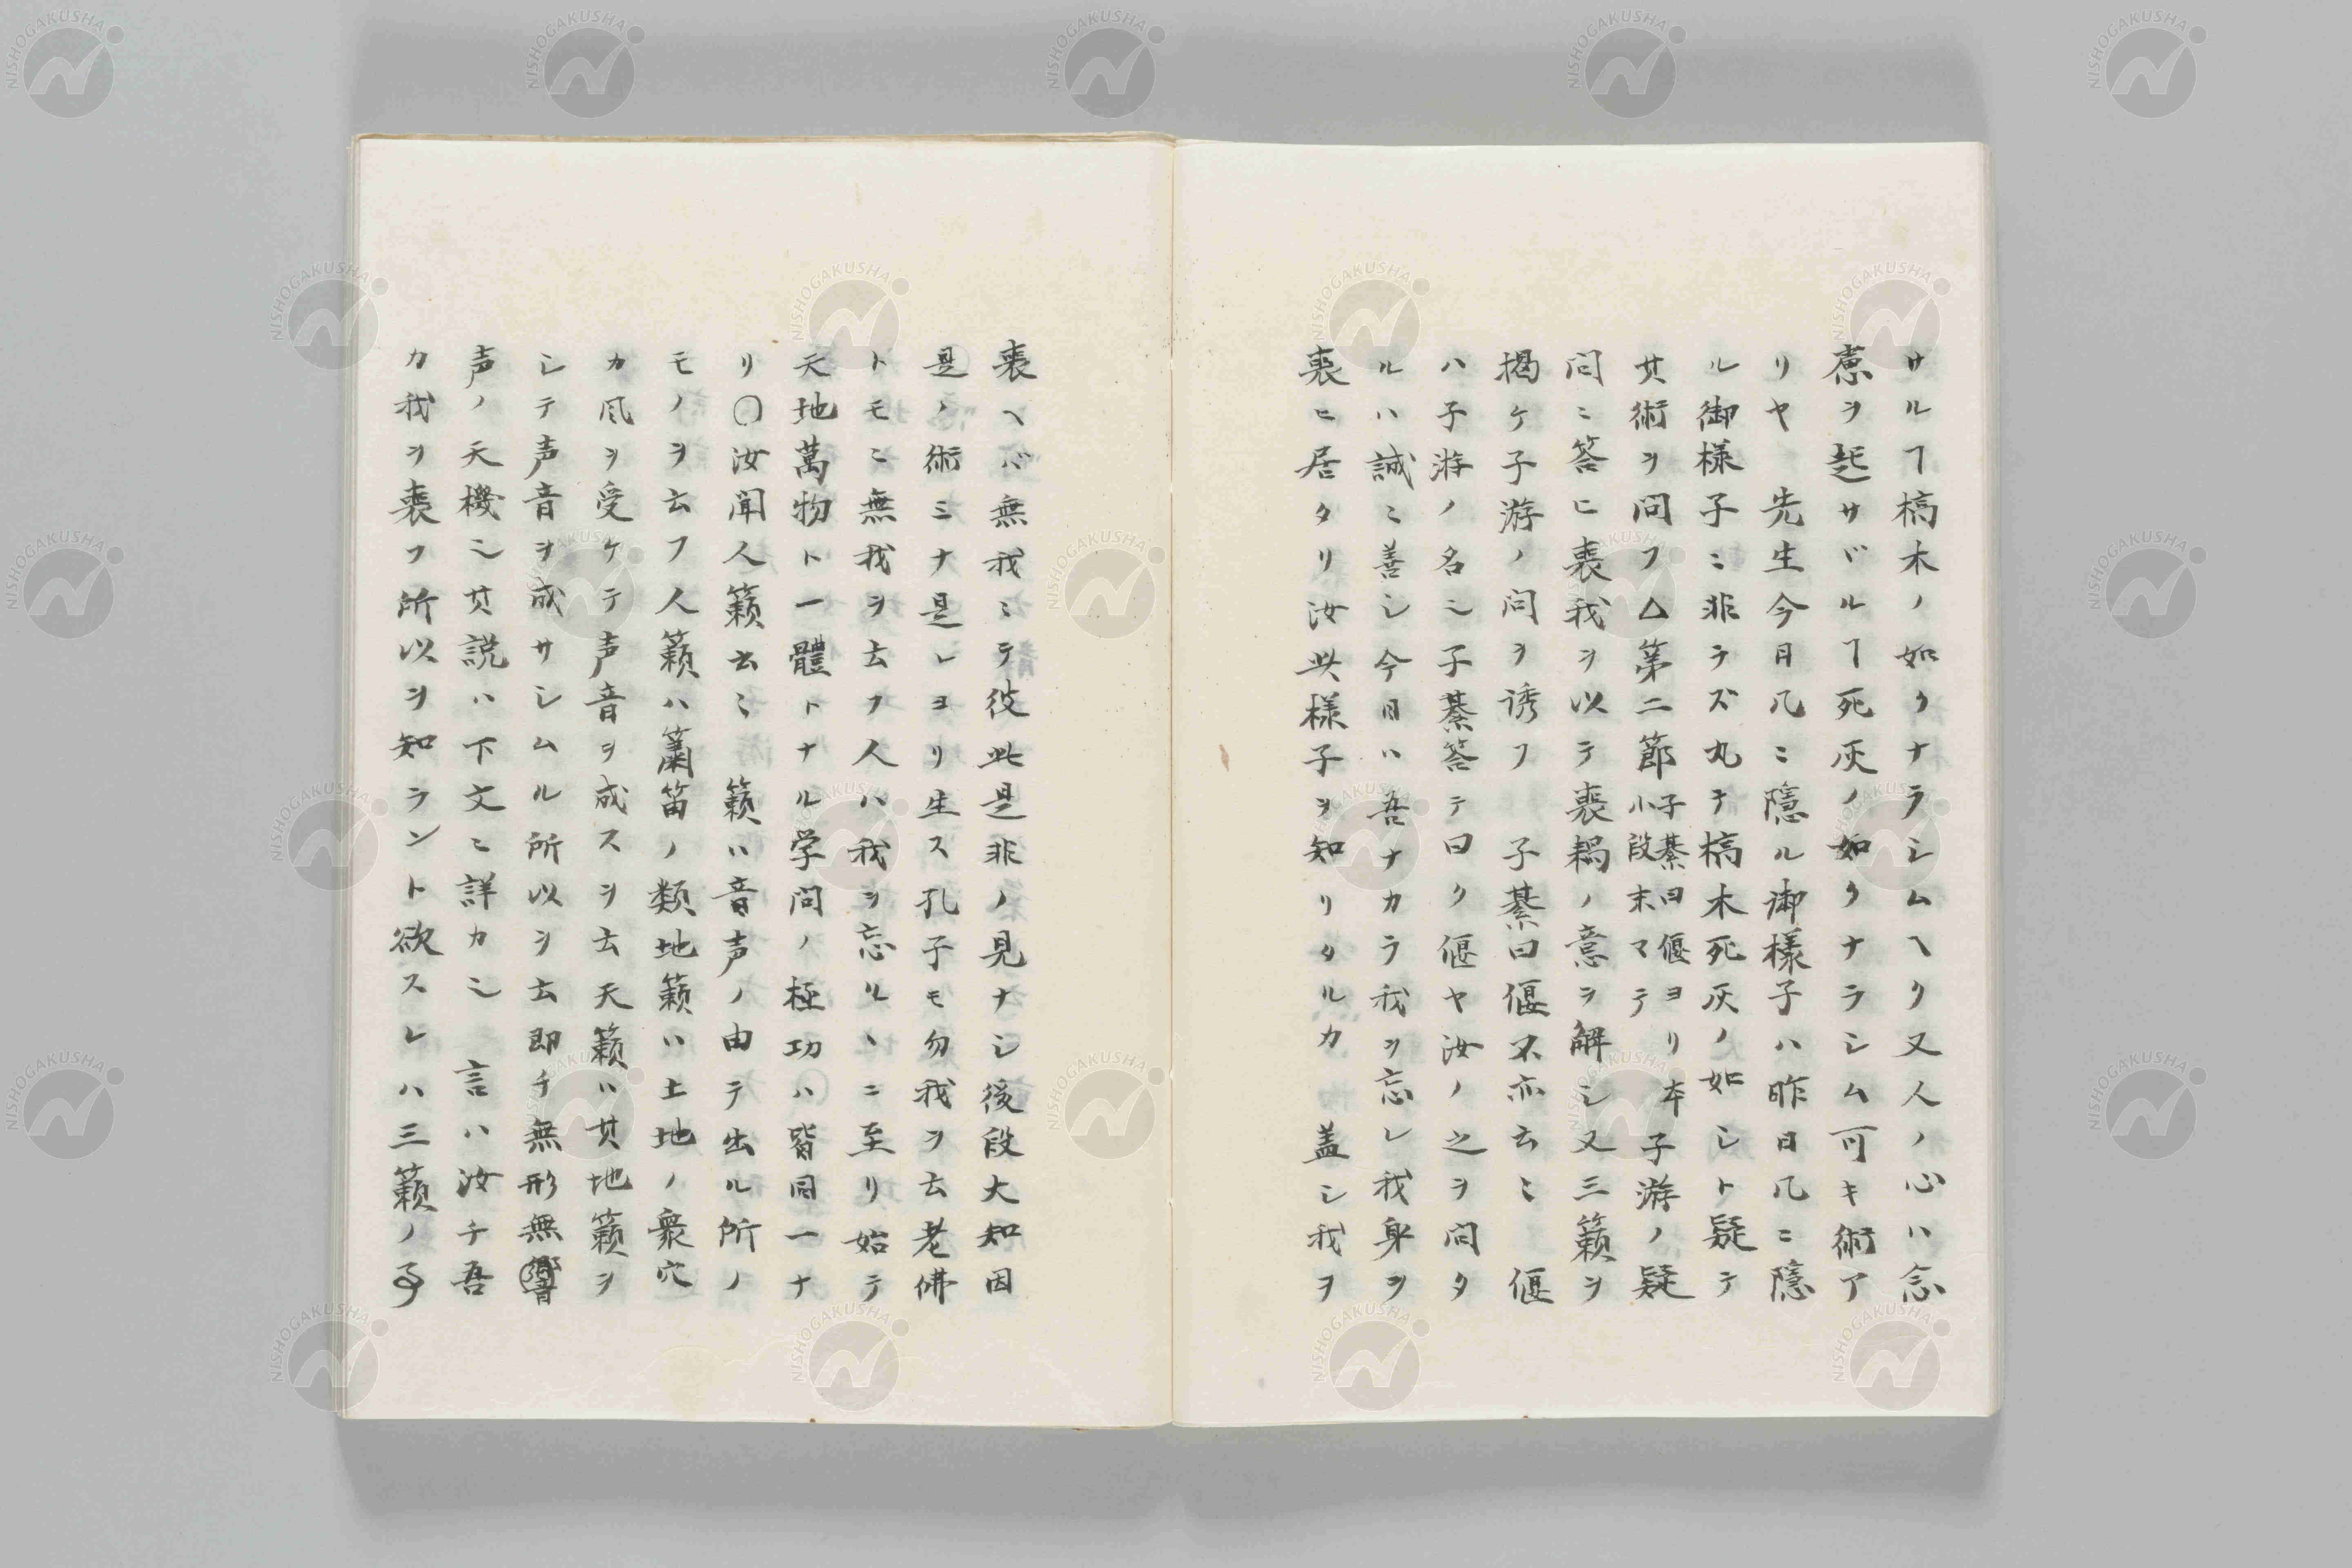 サルヿ槁木ノ如クナラシムヘク又人ノ心ハ念
慮ヲ起サヾルヿ死灰ノ如クナラシム可キ術ア
リヤ 先生今日几ニ隠ル御様子ハ昨日几ニ隠
ル御様子ニ非ラズ丸テ槁木死灰ノ如シト疑テ
其術ヲ問フ△第二節子綦曰偃ヨリ本小段末マテ 子游ノ疑
問ニ答ヒ喪我ヲ以テ喪耦ノ意ヲ解シ又三籟ヲ
掲ケ子游ノ問ヲ誘フ 子綦曰偃不亦云〻 偃
ハ子游ノ名シ子綦答テ曰ク偃ヤ汝ノ之ヲ問タ
ルハ誠ニ善シ今日ハ吾ナカラ我ヲ忘レ我身ヲ
喪ヒ居タリ汝此様子ヲ知リタルカ 蓋シ我ヲ
喪ヘバ無我ニテ彼此是非ノ見ナシ後段大知因
是ノ術ミナ是レヨリ生ス孔子モ勿我ヲ云老佛
トモニ無我ヲ云フ人ハ我ヲ忘ルヽニ至リ始テ
天地萬物ト一體トナル学問ノ極功ハ皆同一ナ
リ〇汝聞人籟云〻 籟ハ音声ノ由テ出ル所ノ
モノヲ云フ人籟ハ簫笛ノ類地籟ハ土地ノ衆穴
カ風ヲ受ケテ声音ヲ成スヲ云天籟ハ其地籟ヲ
シテ声音ヲ成サシムル所以ヲ云即チ無形無響
声ノ天機シ其説ハ下文ニ詳カシ 言ハ汝チ吾
カ我ヲ喪フ所以ヲ知ラント欲スレハ三籟ノヿ
NISHOGAKUSHA